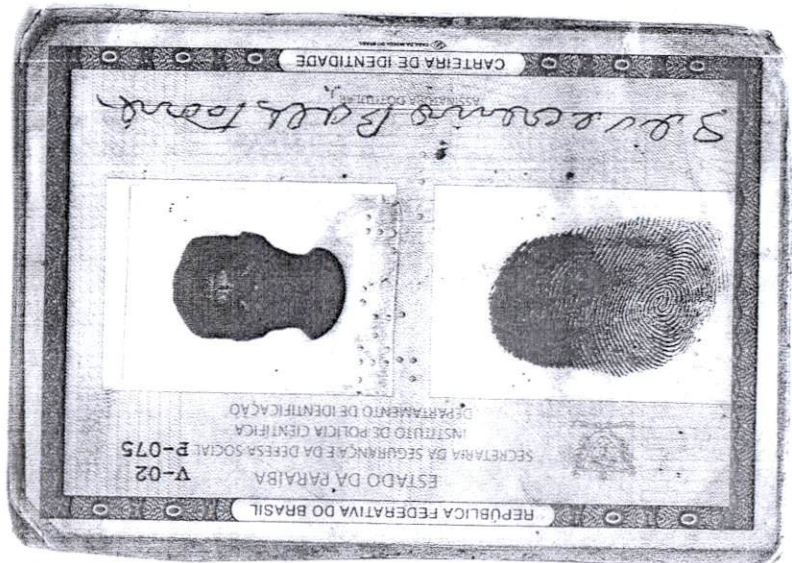 REPÚBLICA FEDERATIVA DO BRASIL
ESTADO DA PARAIBA
V-02
SECRETARIA DA SEGURANÇA E DA DEFESA SOCIAL
P-075
INSTITUTO DE POLÍCIA CIENTÍFICA
DEPARTAMENTO DE IDENTIFICAÇÃO
ASSINATURA DO TITULAR
CARTEIRA DE IDENTIDADE
CASA DA MOEDA DO BRASIL